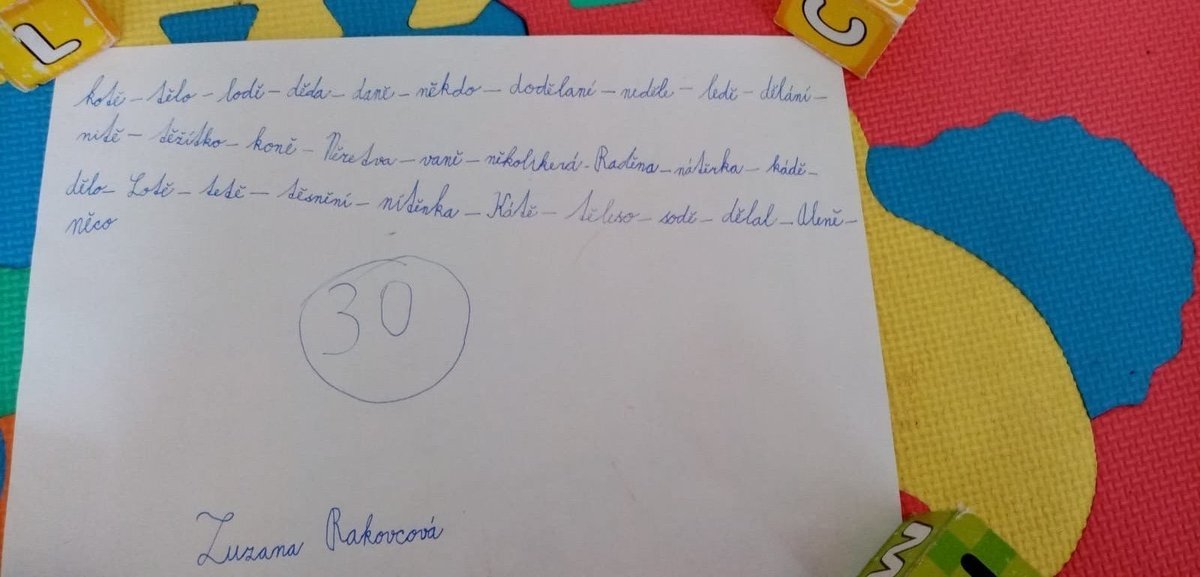 L
C
kotě – tělo – lodě – děda – daně – někdo – dodělaní – neděle – ledě – dělání –
nitě – těžítko – koně – Něretva – vaně – několikerá – Raděna – nátěrka – kádě –
dělo – Lotě – tetě – těsnění – nitěnka – Kátě – těleso – sodě – dělal – Aleně –
něco
30
Zuzana Rakovcová
M